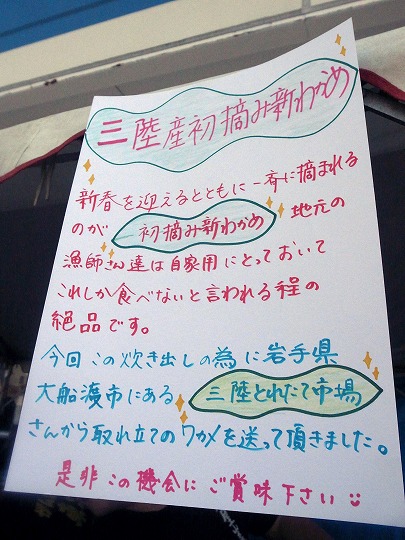 三陸産初摘み新わかめ
新春を迎えるとともに一斉に摘まれる
のが 初摘み新わかめ 地元の
漁師さん達は自家用にとっておいて
これしか食べないと言われる程の
絶品です。
今回この炊き出しの為に岩手県
大船渡市にある 三陸とれたて市場
さんから取れ立てのワカメを送って頂きました。
是非この機会にご賞味下さい